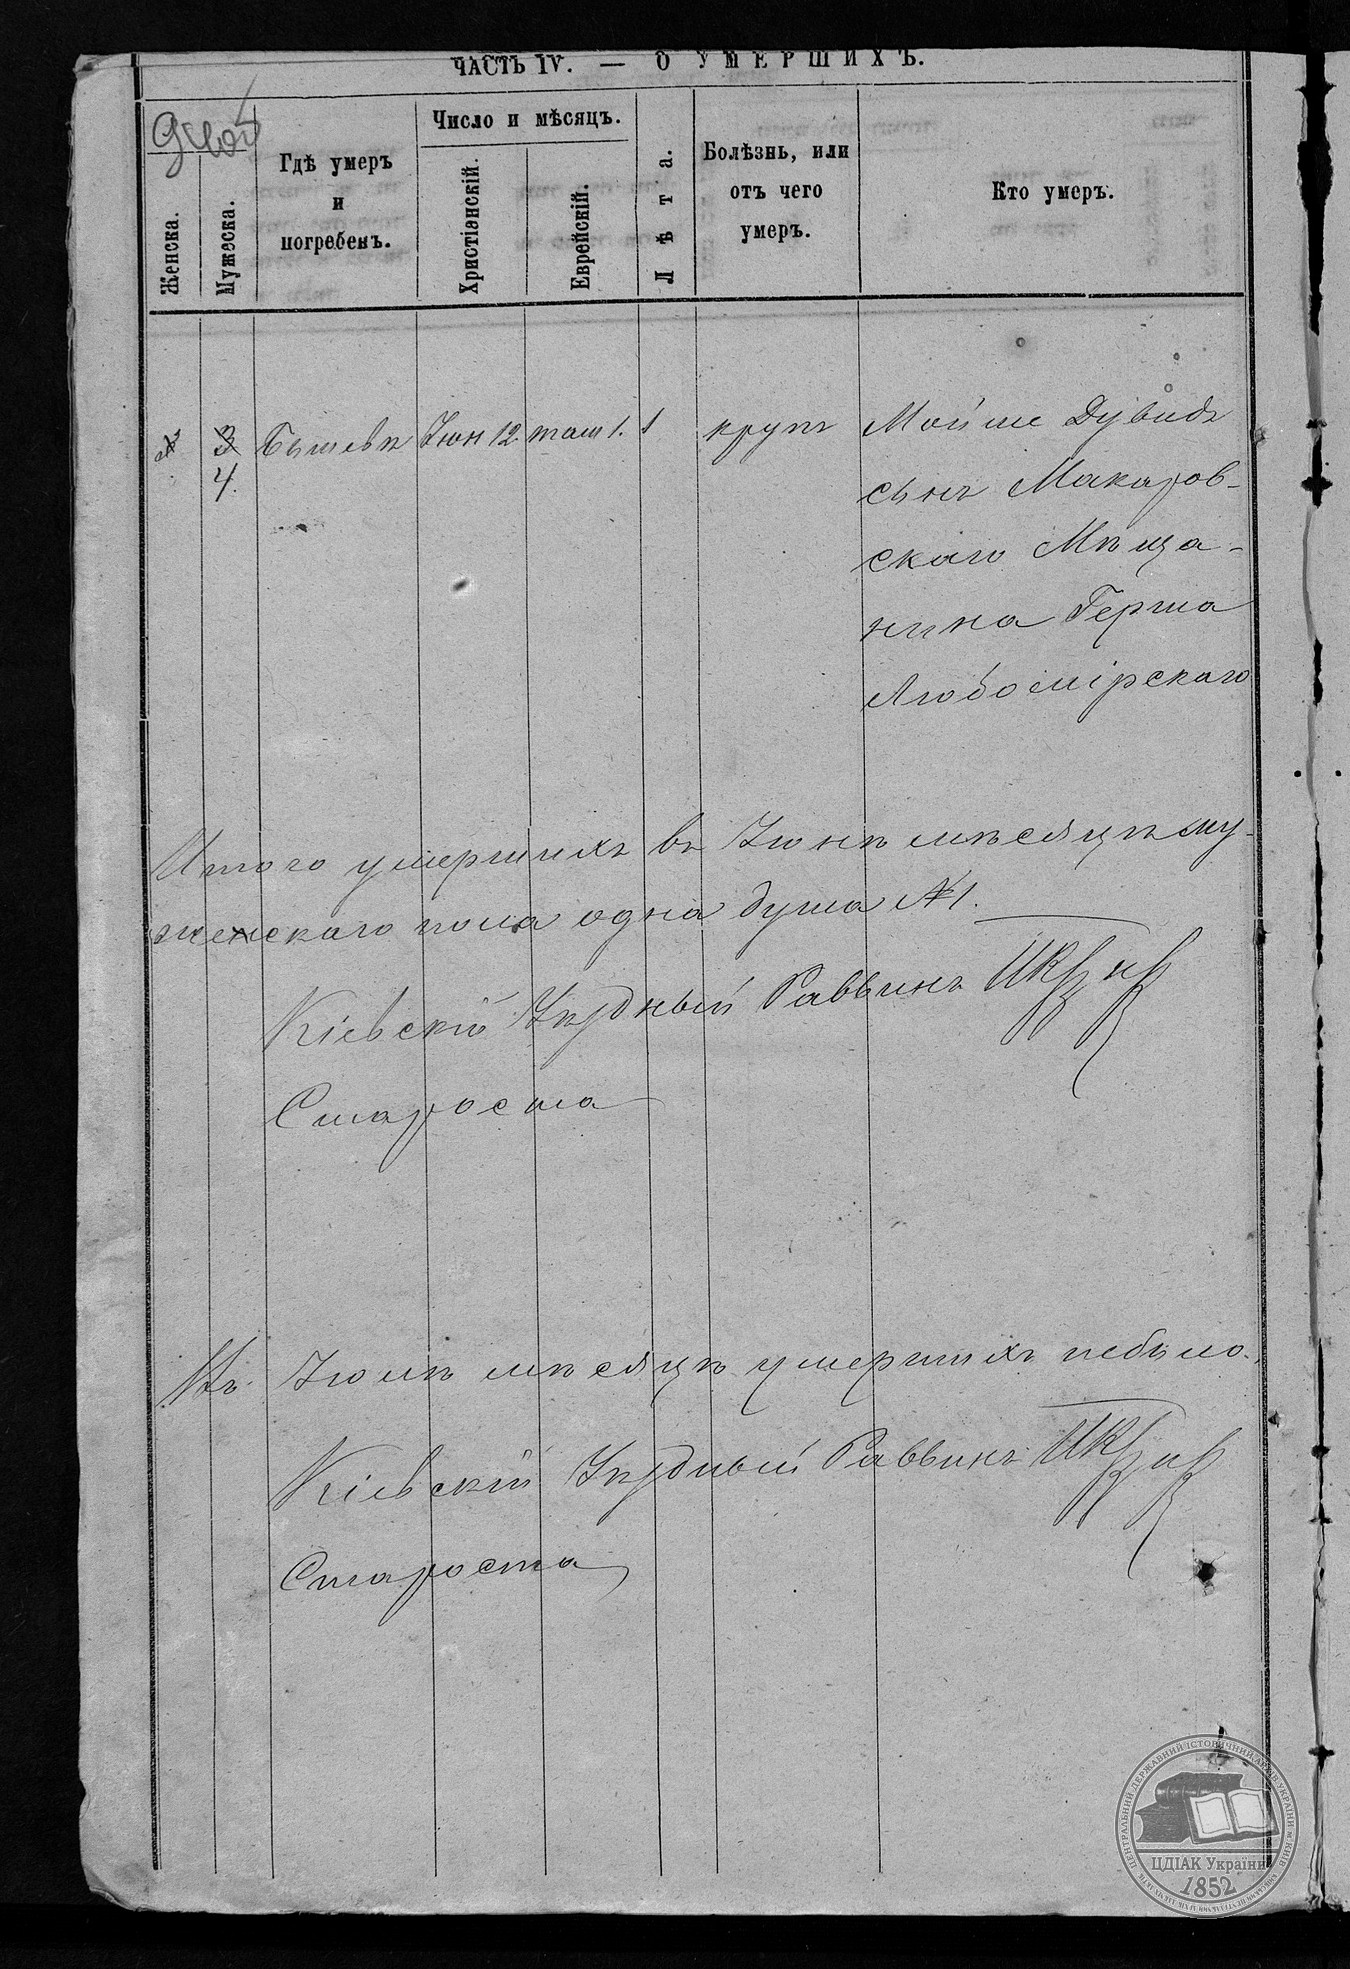 ЧАСТЬ IV. — О УМЕРШИХЪ.
Женска.
Мужеска.
Гдѣ умеръ
и
погребенъ.
Число и мѣсяцъ.
Христіанскій.
Еврейскій.
Лѣта.
Болѣзнь, или
отъ чего
умеръ.
Кто умеръ.
3 Бышевѣ Іюн 12. там 1. 1 крупъ Мойше Дувидъ
4. сынъ Макаров-
скаго Мѣща-
нина Герша
Любомірскаго
Итого умершихъ въ Іюнѣ мѣсяцѣ му-
женскаго пола одна душа №1.
Кіевскій Уѣздный Раввинъ
Староста
Въ Іюлѣ мѣсяцѣ умершихъ небыло.
Кіевскій Уѣздный Раввинъ
Староста
ЦЕНТРАЛЬНИЙ ДЕРЖАВНИЙ ІСТОРИЧНИЙ АРХІВ УКРАЇНИ м. КИЇВ
ЦДІАК України
1852